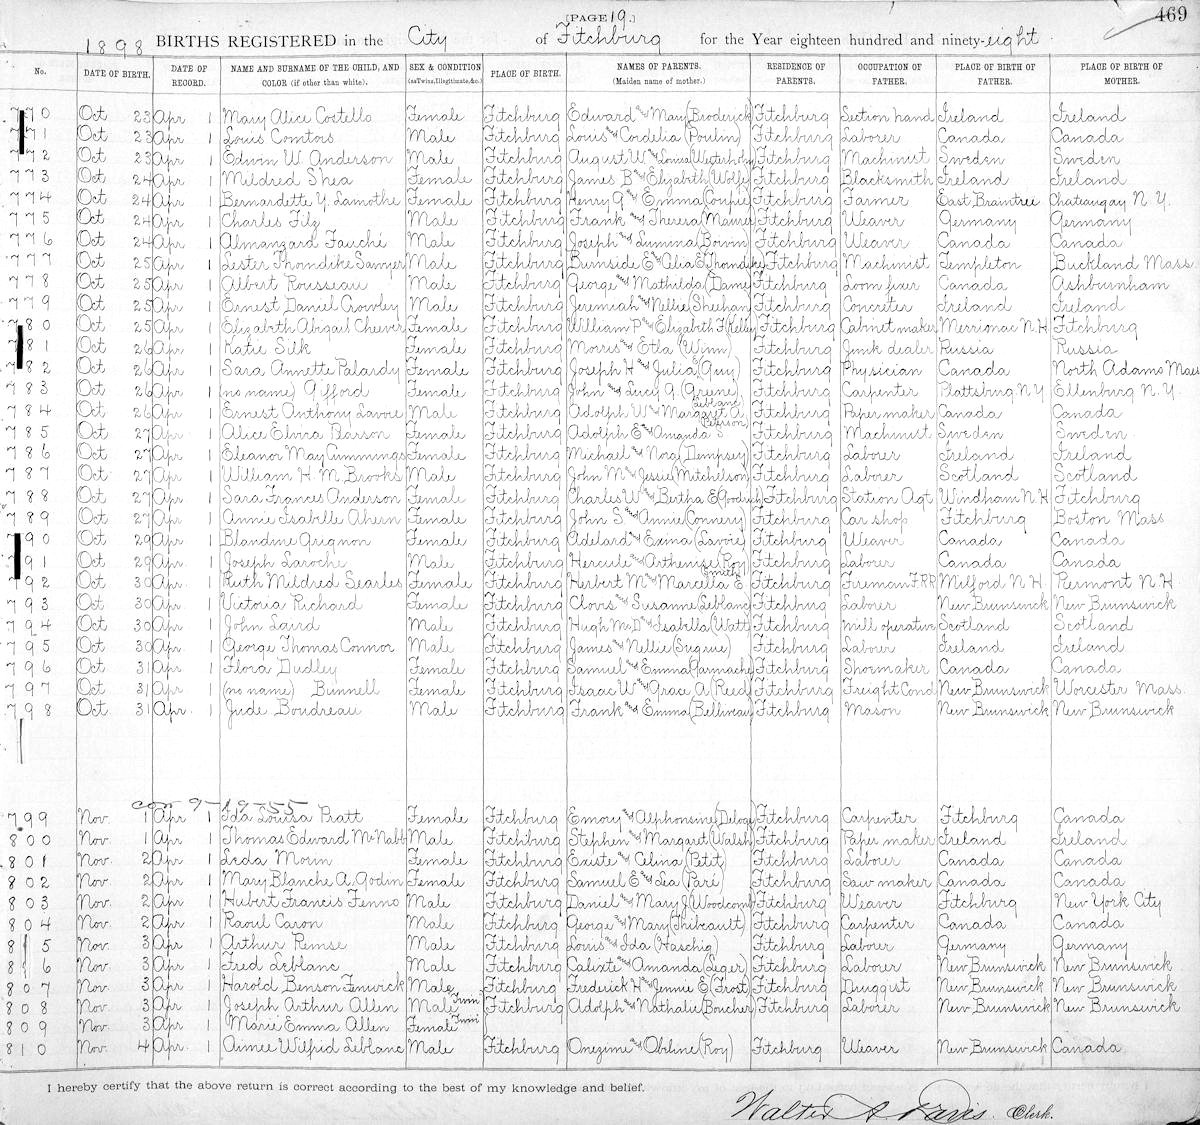 [PAGE 19.]
469
1898 BIRTHS REGISTERED in the City of Fitchburg for the Year eighteen hundred and ninety-eight
No. DATE OF BIRTH. DATE OF RECORD. NAME AND SURNAME OF THE CHILD, AND COLOR (if other than white). SEX & CONDITION (as Twins, Illegitimate, &c.) PLACE OF BIRTH. NAMES OF PARENTS. (Maiden name of mother.) RESIDENCE OF PARENTS. OCCUPATION OF FATHER. PLACE OF BIRTH OF FATHER. PLACE OF BIRTH OF MOTHER.
770 Oct 23 Apr 1 Mary Alice Costello Female Fitchburg Edward and Mary (Broderick) Fitchburg Section hand Ireland Ireland
771 Oct 23 Apr 1 Louis Comtois Male Fitchburg Louis and Cordelia (Poulin) Fitchburg Laborer Canada Canada
772 Oct 23 Apr 1 Edwin W. Anderson Male Fitchburg August W and Louisa (Westerholm) Fitchburg Machinist Sweden Sweden
773 Oct 24 Apr 1 Mildred Shea Female Fitchburg James B and Elizabeth (Wolfe) Fitchburg Blacksmith Ireland Ireland
774 Oct 24 Apr 1 Bernardette Y. Lamothe Female Fitchburg Henry G and Emma (Coupie) Fitchburg Farmer East Braintree Chateaugay N. Y.
775 Oct 24 Apr 1 Charles Filz Male Fitchburg Frank and Theresa Fitchburg Weaver Germany Germany
776 Oct 24 Apr 1 Almanzard Fauché Male Fitchburg Joseph and Lumina (Boivin) Fitchburg Weaver Canada Canada
777 Oct 25 Apr 1 Lester Thorndike Sawyer Male Fitchburg Burnside E and Celia E (Thorndike) Fitchburg Machinist Templeton Buckland Mass
778 Oct 25 Apr 1 Albert Rousseau Male Fitchburg George and Mathilda (Dame) Fitchburg Loom fixer Canada Ashburnham
779 Oct 25 Apr 1 Ernest Daniel Crowley Male Fitchburg Jeremiah and Nellie (Sheehan) Fitchburg Concreter Ireland Ireland
780 Oct 25 Apr 1 Elizabeth Abigail Cheever Female Fitchburg William P and Elizabeth F (Kelley) Fitchburg Cabinet maker Merrimac N. H. Fitchburg
781 Oct 26 Apr 1 Katie Silk Female Fitchburg Morris and Etla (Winn) Fitchburg Junk dealer Russia Russia
782 Oct 26 Apr 1 Sara Annette Palardy Female Fitchburg Joseph H and Julia (Guy) Fitchburg Physician Canada North Adams Mass
783 Oct 26 Apr 1 (no name) Gifford Female Fitchburg John and Lucy G. (Greene) Fitchburg Carpenter Plattsburg N.Y Ellenburg N. Y.
784 Oct 26 Apr 1 Ernest Anthony Lavoie Male Fitchburg Adolph W and Margaret A. Fitchburg Paper maker Canada Canada
785 Oct 27 Apr 1 Alice Elvira Parson Female Fitchburg Adolph E and Amanda S (Peterson) Fitchburg Machinist Sweden Sweden
786 Oct 27 Apr 1 Eleanor May Cummings Female Fitchburg Michael and Nora (Dempsey) Fitchburg Laborer Ireland Ireland
787 Oct 27 Apr 1 William H. M. Brooks Male Fitchburg John M and Jessie (Mitchelson) Fitchburg Laborer Scotland Scotland
788 Oct 27 Apr 1 Sara Frances Anderson Female Fitchburg Charles W and Bertha E (Goodrich) Fitchburg Station Agt Windham N. H. Fitchburg
789 Oct 27 Apr 1 Annie Isabelle Ahern Female Fitchburg John S. and Annie (Connery) Fitchburg Car shop Fitchburg Boston Mass
790 Oct 29 Apr 1 Blandine Grignon Female Fitchburg Adelard and Exima (Lavoie) Fitchburg Weaver Canada Canada
791 Oct 29 Apr 1 Joseph Laroche Male Fitchburg Hercule and Arthemise (Roy) Fitchburg Laborer Canada Canada
792 Oct 30 Apr 1 Ruth Mildred Searles Female Fitchburg Herbert M and Marcella E (Smith) Fitchburg Fireman F.R.R Milford N. H. Piermont N. H.
793 Oct 30 Apr 1 Victoria Richard Female Fitchburg Clovis and Susanne (Leblanc) Fitchburg Laborer New Brunswick New Brunswick
794 Oct 30 Apr 1 John Laird Male Fitchburg Hugh M. D and Isabella (Watt) Fitchburg Mill operative Scotland Scotland
795 Oct 30 Apr 1 George Thomas Connor Male Fitchburg James and Nellie (Sugrue) Fitchburg Laborer Ireland Ireland
796 Oct 31 Apr 1 Flora Dudley Female Fitchburg Samuel and Emma (Parmache) Fitchburg Shoemaker Canada Canada
797 Oct 31 Apr 1 (no name) Bunnell Female Fitchburg Isaac W and Grace A (Reed) Fitchburg Freight Cond New Brunswick Worcester Mass.
798 Oct 31 Apr 1 Jude Boudreau Male Fitchburg Frank and Emma (Belliveau) Fitchburg Mason New Brunswick New Brunswick
cor 9-19-55
799 Nov. 1 Apr 1 Ida Louisa Pratt Female Fitchburg Emory and Alphonsine (Deloge) Fitchburg Carpenter Fitchburg Canada
800 Nov. 1 Apr 1 Thomas Edward McNabb Male Fitchburg Stephen and Margaret (Walsh) Fitchburg Paper maker Ireland Ireland
801 Nov. 2 Apr 1 Leda Morin Female Fitchburg Existe and Celina (Petit) Fitchburg Laborer Canada Canada
802 Nov. 2 Apr 1 Mary Blanche A. Godin Female Fitchburg Samuel E and Lea (Paré) Fitchburg Saw maker Canada Canada
803 Nov. 2 Apr 1 Hubert Francis Fenno Male Fitchburg Daniel and Mary J. (Woodcomb) Fitchburg Weaver Fitchburg New York City
804 Nov. 2 Apr 1 Raoul Caron Male Fitchburg George and Mary (Thibeault) Fitchburg Carpenter Canada Canada
805 Nov. 3 Apr 1 Arthur Remse Male Fitchburg Louis and Ida (Haschig) Fitchburg Laborer Germany Germany
806 Nov. 3 Apr 1 Fred Leblanc Male Fitchburg Calixte and Amanda (Leger) Fitchburg Laborer New Brunswick New Brunswick
807 Nov. 3 Apr 1 Harold Benson Fenwick Male Fitchburg Frederick H and Jennie E (Frost) Fitchburg Druggist New Brunswick New Brunswick
808 Nov. 3 Apr 1 Joseph Arthur Allen Male Twin Fitchburg Adolph and Nathalie (Boucher) Fitchburg Laborer New Brunswick New Brunswick
809 Nov. 3 Apr 1 Marie Emma Allen Female Twin
810 Nov. 4 Apr. 1 Aimee Wilfred Leblanc Male Fitchburg Onezime and Obline (Roy) Fitchburg Weaver New Brunswick Canada
I hereby certify that the above return is correct according to the best of my knowledge and belief.
Walter A Davis. Clerk.